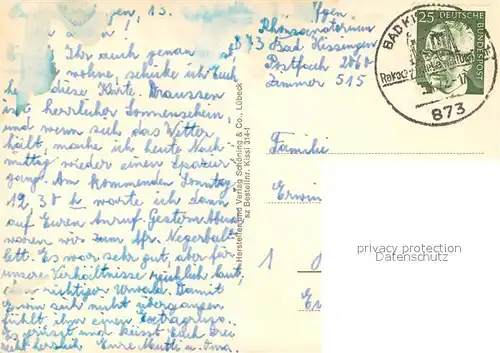 gen, 13.
Ihr auch genau
wohne, schicke ich Euch
diese Karte. Draussen
herrlicher Sonnenschein,
und wenn sich das Wetter
hält, mache ich heute Nach-
mittag wieder einen Spazier-
gang. Am kommenden Sonntag
12,30 h warte ich dann
auf Euren Anruf. Gestern Abend
waren wir zum Afr. Negerbal-
lett. Es war sehr gut, aber für
unsere Verhältnisse reichlich laut,
ein richtiger Urwald. Damit
Erwin sich nicht übergangen
fühlt ihm einen Extragruss.
Es grüsst und küsst Euch Drei
recht herzlich Eure Mutti u. Oma
Hersteller und Verlag Schöning & Co., Lübeck
sz Bestellnr. Kissi 314-f
Rhönsanatorium
873 Bad Kissingen
Postfach 2060
Zimmer 515
25 DEUTSCHE BUNDESPOST
BAD KISS
873
Familie
Erwin
1
privacy protection
Datenschutz